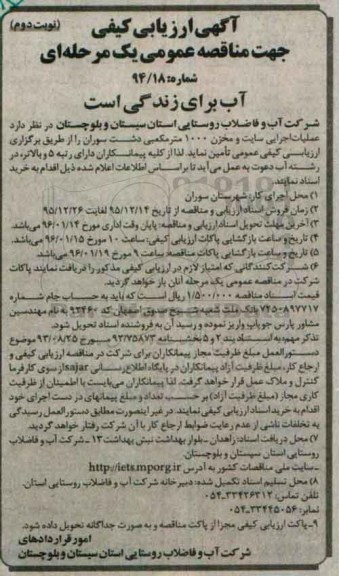 (نوبت دوم)
آگهی ارزیابی کیفی
جهت مناقصه عمومی یک مرحله‌ای
شماره: ۹۴/۱۸
آب برای زندگی است
شرکت آب و فاضلاب روستایی استان سیستان و بلوچستان در نظر دارد
عملیات اجرایی سایت و مخزن ۱۰۰۰ مترمکعبی دشت سوران را از طریق برگزاری
ارزیابی کیفی عمومی تأمین نماید. لذا از کلیه پیمانکاران دارای رتبه ۵ و بالاتر، در
رشته آب دعوت به عمل می‌آید تا براساس اطلاعات اعلام شده ذیل اقدام به خرید
اسناد نمایند.
۱) محل اجرای کار: شهرستان سوران
۲) زمان فروش اسناد ارزیابی و مناقصه از تاریخ ۹۵/۱۲/۱۴ لغایت ۹۵/۱۲/۲۶
۳) آخرین مهلت تحویل اسناد ارزیابی و مناقصه: پایان وقت اداری مورخ ۹۶/۰۱/۱۴ می‌باشد.
۴) تاریخ و ساعت بازگشایی پاکات ارزیابی کیفی: ساعت ۱۰ مورخ ۹۶/۰۱/۱۵ می‌باشد.
۵) تاریخ و ساعت بازگشایی پاکات مناقصه: ساعت ۹ مورخ ۹۶/۰۱/۱۹ می‌باشد.
۶) شرکت‌کنندگانی که امتیاز لازم در ارزیابی کیفی مذکور را دریافت نمایند پاکات
شرکت در مناقصه عمومی یک مرحله آنان باز خواهد گردید.
قیمت اسناد مناقصه ۱/۵۰۰/۰۰۰ ریال است که باید به حساب جام شماره
۷۲۵۰۸۹۷۷۱۷ بانک ملت شعبه شیخ صدوق اصفهان کد ۹۳۴۶۰ به نام مهندسین
مشاور پارس جویاب واریز نموده و رسید آن به فروشنده اسناد تحویل شود.
تذکر مهم: به استناد بند ۲ و ۵ بخشنامه ۹۳/۷۵۸۷۳ مورخ ۹۳/۰۸/۲۵ موضوع
دستورالعمل مبلغ ظرفیت مجاز پیمانکاران برای شرکت در مناقصه ارزیابی کیفی و
ارجاع کار، مبلغ ظرفیت آزاد پیمانکاران در پایگاه اطلاع رسانی sajar از سوی کارفرما
کنترل و ملاک عمل قرار خواهد گرفت. لذا پیمانکاران می‌بایست با اطمینان از ظرفیت
کاری مجاز (مبلغ ظرفیت آزاد) بر حسب تعداد و مبلغ پیمانهای در دست اجرای خود
اقدام به خرید اسناد ارزیابی کیفی نمایند. در غیر اینصورت مطابق دستورالعمل رسیدگی
به تخلفات ناشی از عدم رعایت ضوابط ارجاع کار با آن شرکت رفتار خواهد گردید.
۷) محل دریافت اسناد: زاهدان - بلوار بهداشت نبش بهداشت ۱۳ - شرکت آب و فاضلاب
روستایی استان سیستان و بلوچستان.
- سایت ملی مناقصات کشور به آدرس http://iets.mporg.ir
۸) محل تسلیم اسناد تکمیل شده: دبیرخانه شرکت آب و فاضلاب روستایی استان.
تلفن تماس: ۳۳۴۲۶۳۱۲-۰۵۴
نمابر: ۳۳۴۴۵۰۵۶-۰۵۴
۹- پاکت ارزیابی کیفی مجزا از پاکت مناقصه و به صورت جداگانه تحویل داده شود.
امور قراردادهای
شرکت آب و فاضلاب روستایی استان سیستان و بلوچستان